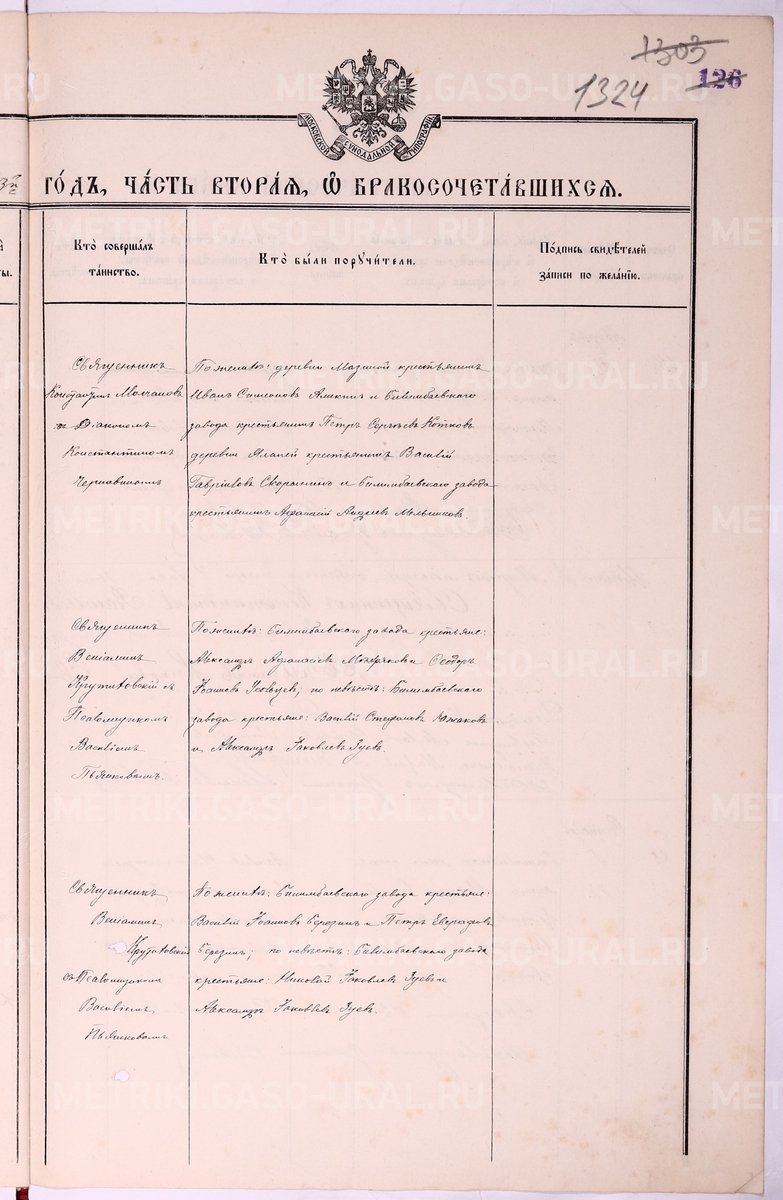 1303
1324
126
МОСКОВСКОЙ СѴНОДАЛЬНОЙ ТИПОГРАФІИ
го́дъ, ча́сть втора́ѧ, ѡ҆ бракосочета́вшихсѧ.
Кто̀ соверша́лъ
та́инство.
Кто̀ бы́ли порꙋчи́тели.
По́дпись свидѣ́телей
за́писи по жела́нїю.
Священникъ
Константинъ Молчановъ
съ Діакономъ
Константиномъ
Чернавинымъ
По женихѣ: деревни Мазиной крестьянинъ
Иванъ Симеоновъ и Билимбаевскаго
завода крестьянинъ Петръ Сергѣевъ Котковъ
деревни крестьянинъ Василій
Гавріиловъ Скорынинъ и Билимбаевскаго завода
крестьянинъ Афанасій Андреевъ Мельниковъ.
Священникъ
Веніаминъ
Крутиховскій съ
Псаломщикомъ
Василіемъ
Пьянковымъ.
По женихѣ: Билимбаевскаго завода крестьяне:
Александръ Афанасіевъ и Ѳеодоръ
Іоанновъ; по невѣстѣ: Билимбаевскаго
завода крестьяне: Василій Стефановъ Южаковъ
и Александръ Іаковлевъ Зуевъ.
Священникъ
Веніаминъ
Крутиховскій
съ Псаломщикомъ
Василіемъ
Пьянковымъ
По женихѣ: Билимбаевскаго завода крестьяне:
Василій Іоанновъ Березинъ и Петръ Евграфовъ
Березинъ; по невѣстѣ: Билимбаевскаго завода
крестьяне: Николай Іаковлевъ Зуевъ и
Александръ Іаковлевъ Зуевъ.
METRIKI.GASO-URAL.RU